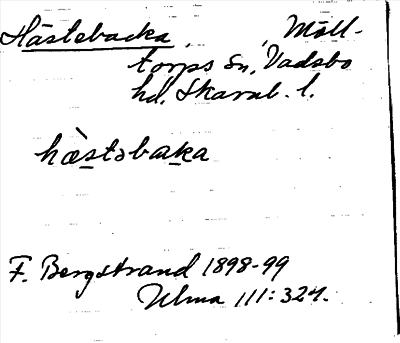 Hästebacka, , Möll-
torps sn, Vadsbo
hd, Skarab. l.
hæ̀stəbaka
F. Bergstrand 1898-99
Ulma 111:324.